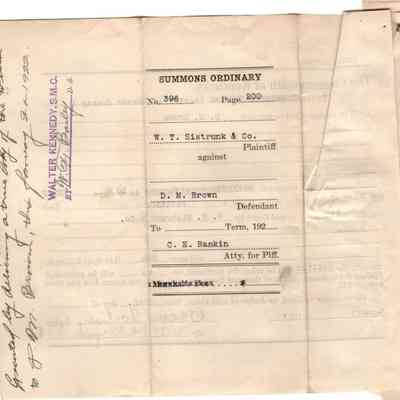 SUMMONS ORDINARY
No. 396 Page 200
W. T. Sistrunk & Co.
Plaintiff
against
D. M. Brown
Defendant
To Term, 192
C. E. Rankin
Atty. for Plff.
WALTER KENNEDY, S.M.C.
BY D.S.
Executed by delivering a true copy of the within
to D. M. Brown, this January 1922